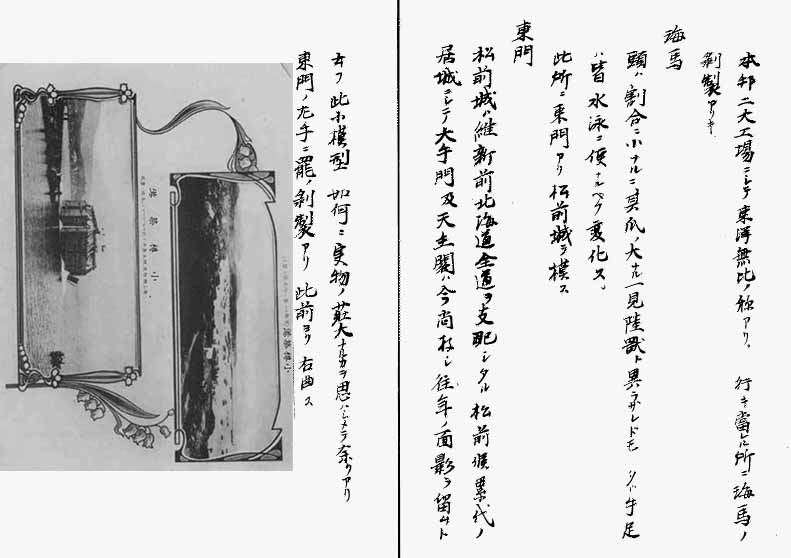 本邦二大工場ニシテ東洋無比ノ称アリ、行キ當レル所ニ海馬ノ
剥製アリキ
海馬
頭ハ割合ニ小ナルニ其爪ノ大ナル一見陸獣ト異ラザレドモ 手足
ハ皆水泳ニ便ナルベク変化ス。
此所ニ東門アリ松前城ヲ模ス
東門
松前城ハ維新前北海道全道ヲ支配シタル松前候累代ノ
居城ニシテ大手門及天主閣ハ今尚存シ往年ノ面影ヲ留ムト
云フ此小模型 如何ニ実物ノ荘大ナルカヲ思ハシメテ余リアリ
東門ノ左手ニ羆剥製アリ此前ヨリ右曲ス
小樽築港
小樽築港